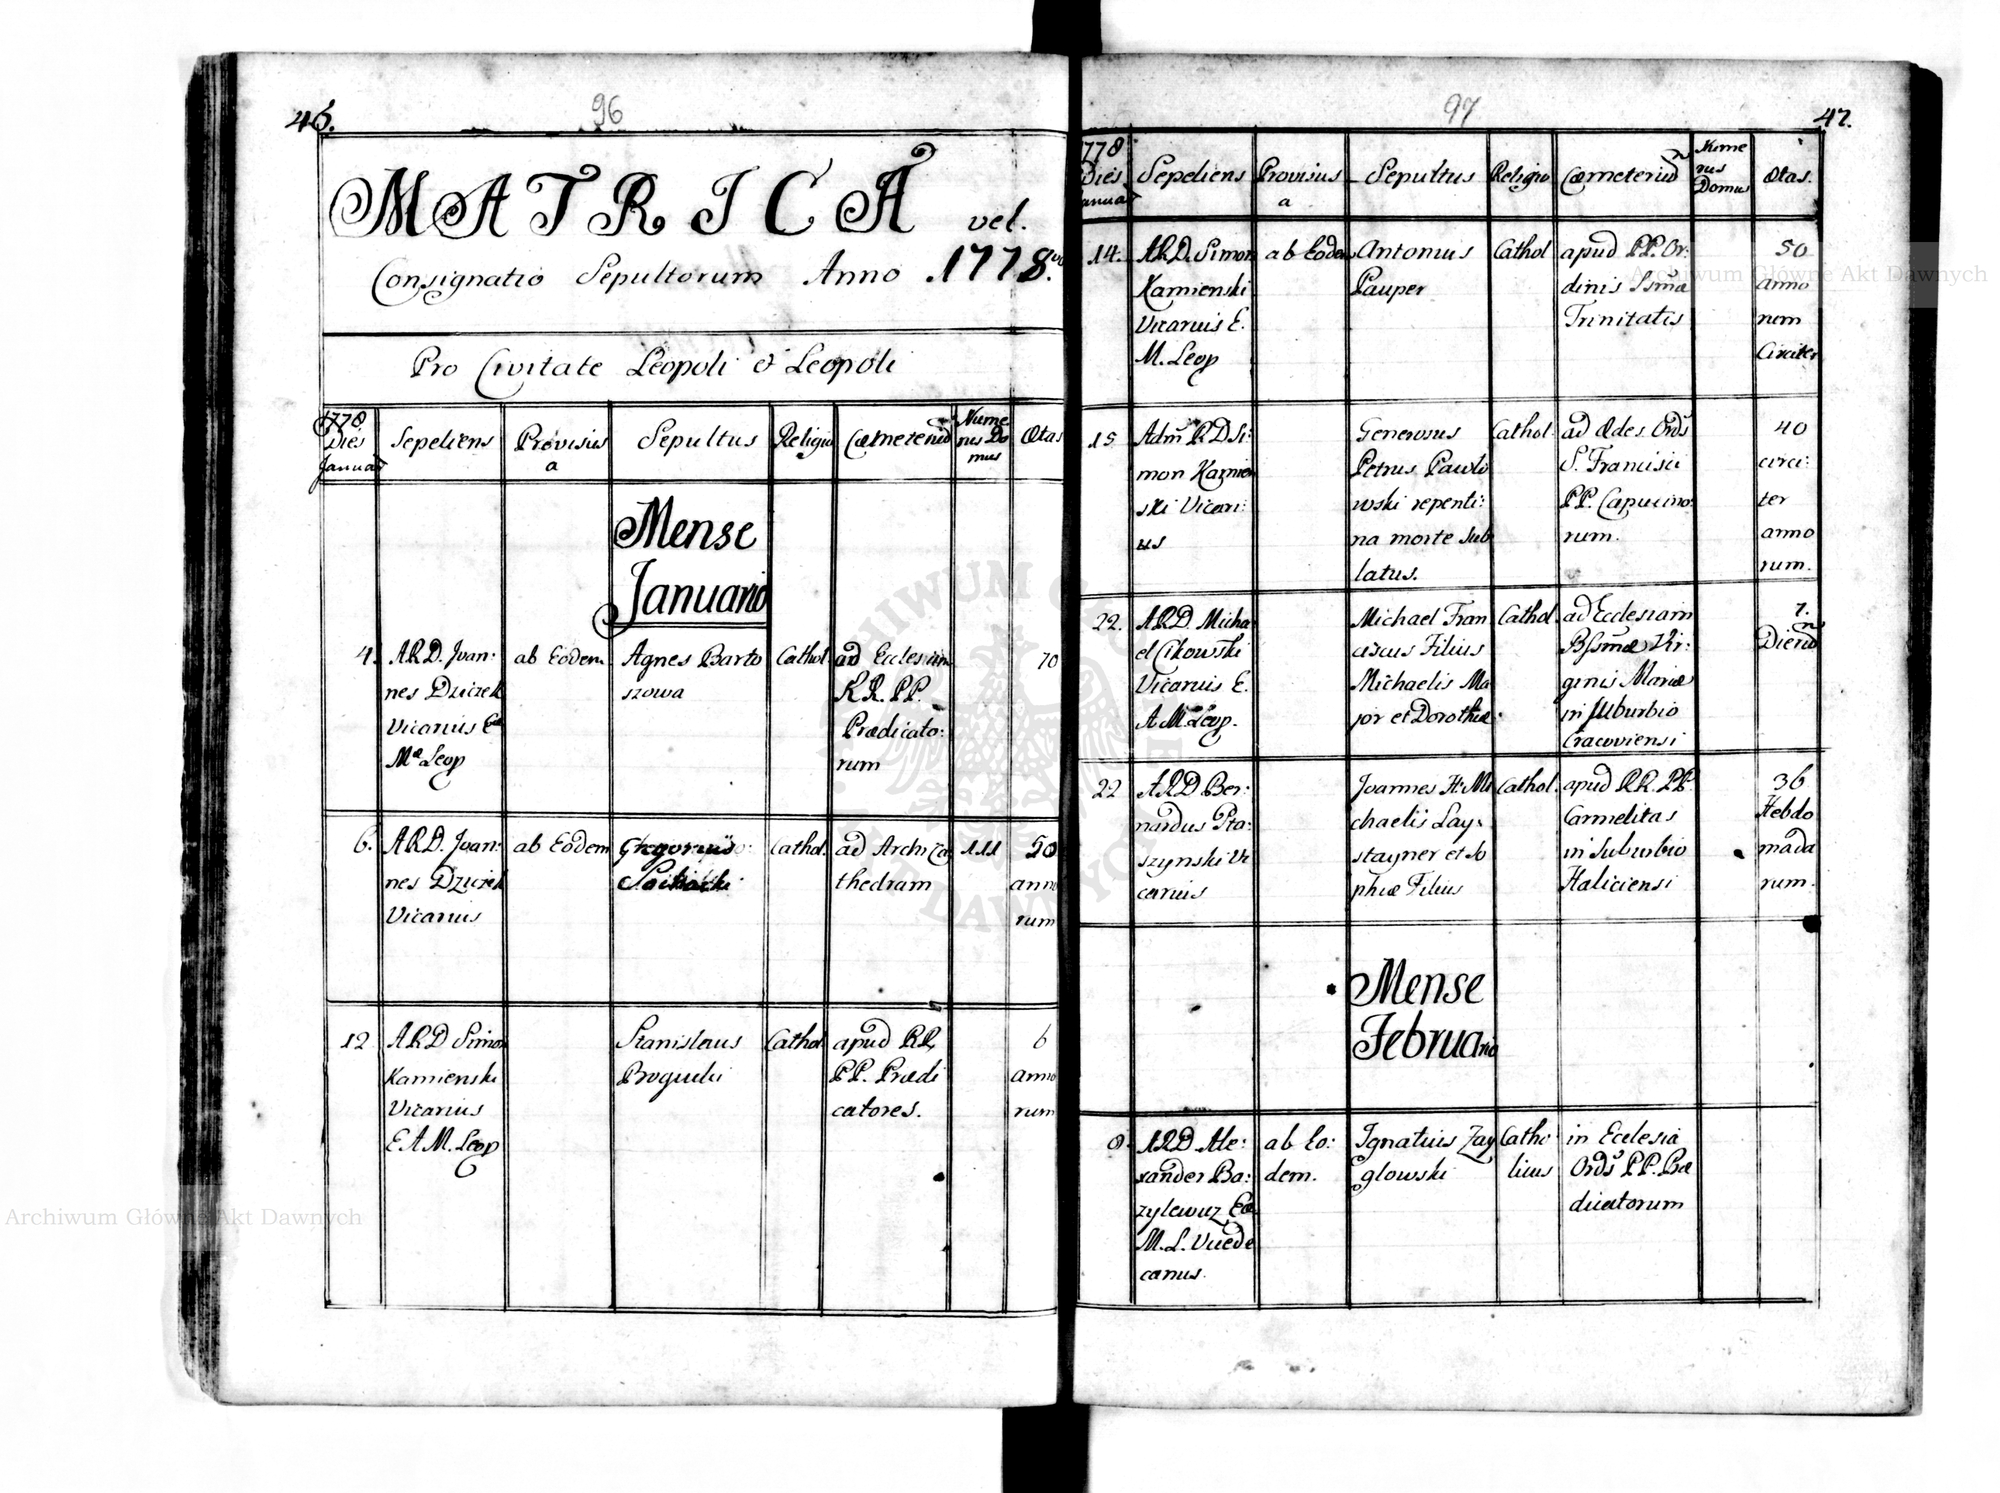 46.
96
MATRICA vel.
Consignatio Sepultorum Anno 1778.
Pro Civitate Leopoli et Leopoli
1778
Dies
Januar
Sepeliens
Provisus
a
Sepultus
Religio
Cæmeteriū
Nume
rus Do
mus
Ætas
Mense
Januario
4.
A.R.D. Joan:
nes Dziczek
Vicarius Eæ
Mæ Leop
ab Eodem
Agnes Barto
szowa
Cathol.
ad Ecclesiam
R.R. P.P.
Prædicato:
rum
70
6.
A.R.D. Joan:
nes Dziczek
Vicarius
ab Eodem
Gregorius
Cathol.
ad Archi Ca
thedram
111
50
anno
rum
12
A R D Simon
Kamienski
Vicarius
E A M. Leop
Stanislaus
Bogucki
Cathol
apud RR.
P.P. Prædi
catores.
6
anno
rum
97
47.
1778
Dies
Januar
Sepeliens
Provisus
a
Sepultus
Religio
Cæmeteriū
Nume
rus
Domus
Ætas.
14.
A.R.D. Simon
Kamienski
Vicarius E.
M. Leop
ab Eodem
Antonius
Pauper
Cathol
apud P.P. Or:
dinis Ssmæ
Trinitatis
50
anno
rum
Circiter
15
Adm R D Si:
mon Kamien
ski Vicari:
us
Generosus
Petrus Pawlo
wski repenti:
na morte sub
latus.
Cathol.
ad Ædes Ords
S. Francisci
P.P. Capucino
rum.
40
circi:
ter
anno
rum.
22.
A R D. Micha
el Cikowski
Vicarius E.
A M. Leop.
Michael Fran
ciscus Filius
Michaelis Ma
jor et Dorotheæ
Cathol.
ad Ecclesiam
Bssmæ Vir:
ginis Mariæ
in suburbio
Cracoviensi
7.
Dierū
22
A R D Ber:
nardus Pta:
szynski Vi
carius
Joannes H: Mi
chaelis Lay:
stayner et So
phiæ Filius
Cathol.
apud R.R. P.P.
Carmelitas
in suburbio
Haliciensi
36
Hebdo
mada
rum.
Mense
Februario
8.
A R D Ale:
xander Ba:
zylewicz Eæ
M. L. Vicede
canus.
ab Eo:
dem.
Ignatius Zay
glowski
Catho
licus
in Ecclesia
Ords P.P. Præ
dicatorum
Archiwum Główne Akt Dawnych
Archiwum Główne Akt Dawnych